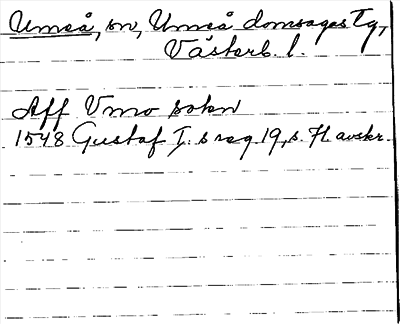 Umeå, sn, Umeå domsagas Tg,
Västerb. l.
Aff Vmo sokn
1548 Gustaf I:s reg 19, s. 71 avskr.